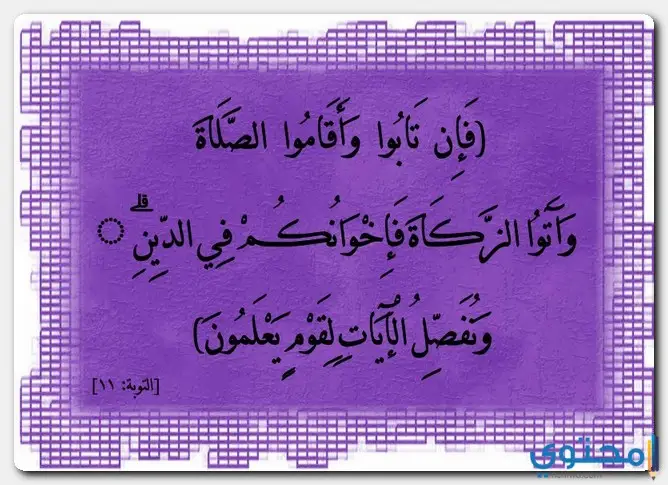 (فَإِن تَابُوا وَأَقَامُوا الصَّلَاةَ
وَآتَوُا الزَّكَاةَ فَإِخْوَانُكُمْ فِي الدِّينِ ۗ
وَنُفَصِّلُ الْآيَاتِ لِقَوْمٍ يَعْلَمُونَ)
[التوبة: ١١]
محتوى